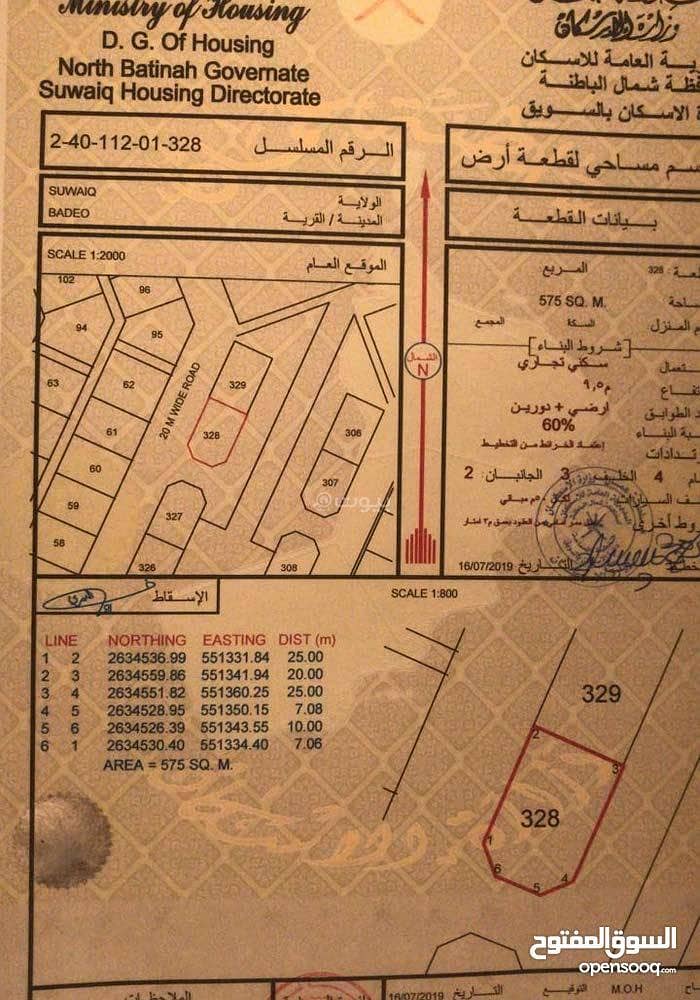 Ministry of Housing
D. G. Of Housing
North Batinah Governate
Suwaiq Housing Directorate
وزارة الإسكان
العامة للاسكان
شمال الباطنة
الاسكان بالسويق
2-40-112-01-328 الرقم المسلسل
مساحي لقطعة أرض
SUWAIQ الولاية
BADEO المدينة / القرية
بيانات القطعة
SCALE 1:2000 الموقع العام
102
96
94
95
63
62
61
60
59
58
20 M WIDE ROAD
329
328
327
326
306
307
308
الشمال
N
328 المربع
575 SQ. M.
المنزل السكة المجمع
شروط البناء
سكني تجاري
٩,٥م
أرضي + دورين
60%
إعتماد الخرائط من التخطيط
4 الخلفي 3 الجانبان: 2
أخرى
التاريخ 16/07/2019
بيوت
الإسقاط
SCALE 1:800
LINE NORTHING EASTING DIST (m)
1 2 2634536.99 551331.84 25.00
2 3 2634559.86 551341.94 20.00
3 4 2634551.82 551360.25 25.00
4 5 2634528.95 551350.15 7.08
5 6 2634526.39 551343.55 10.00
6 1 2634530.40 551334.40 7.06
AREA = 575 SQ. M.
329
2
3
328
1
6
5
4
السوق المفتوح
opensooq.com
الملاحظات
16/07/2019 التاريخ التوقيع M.O.H